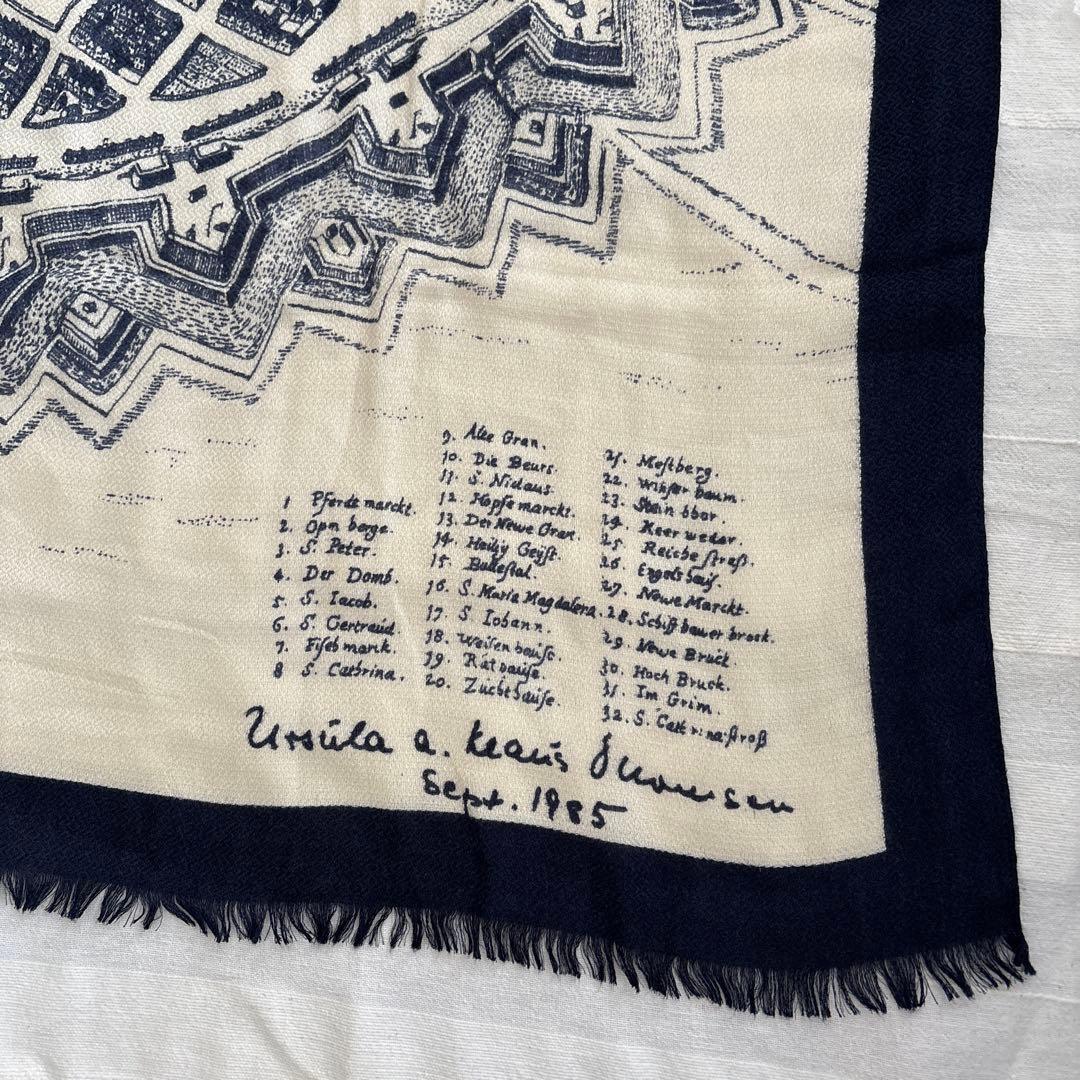 1 Pferdemarckt.
2. Opn berge.
3. S. Peter.
4. Der Domb.
5. S. Iacob.
6. S. Gertraud.
7. Fischmarck.
8 S. Cathrina.
9. Alte Gran.
10. Die Beurs.
11. S. Niclaus.
12. Hopfemarckt.
13. Der Newe Gran.
14. Heilig Geist.
15.
16. S. Maria Magdalena.
17. S. Iohann.
18. Weisenhause.
19. Rathause.
20. Zuchthause.
21. Mesberg.
22. Winserbaum.
23. Steinthor.
24. Keerweder.
25. Reichestraß.
26. Engelshaus.
27. Newe Marckt.
28. Schiffbauer brook.
29. Newe Bruck.
30. Hoch Bruck.
31. Im Grim.
32. S. Cathrinastroß
Ursula a. Klaus Thomsen
Sept. 1985